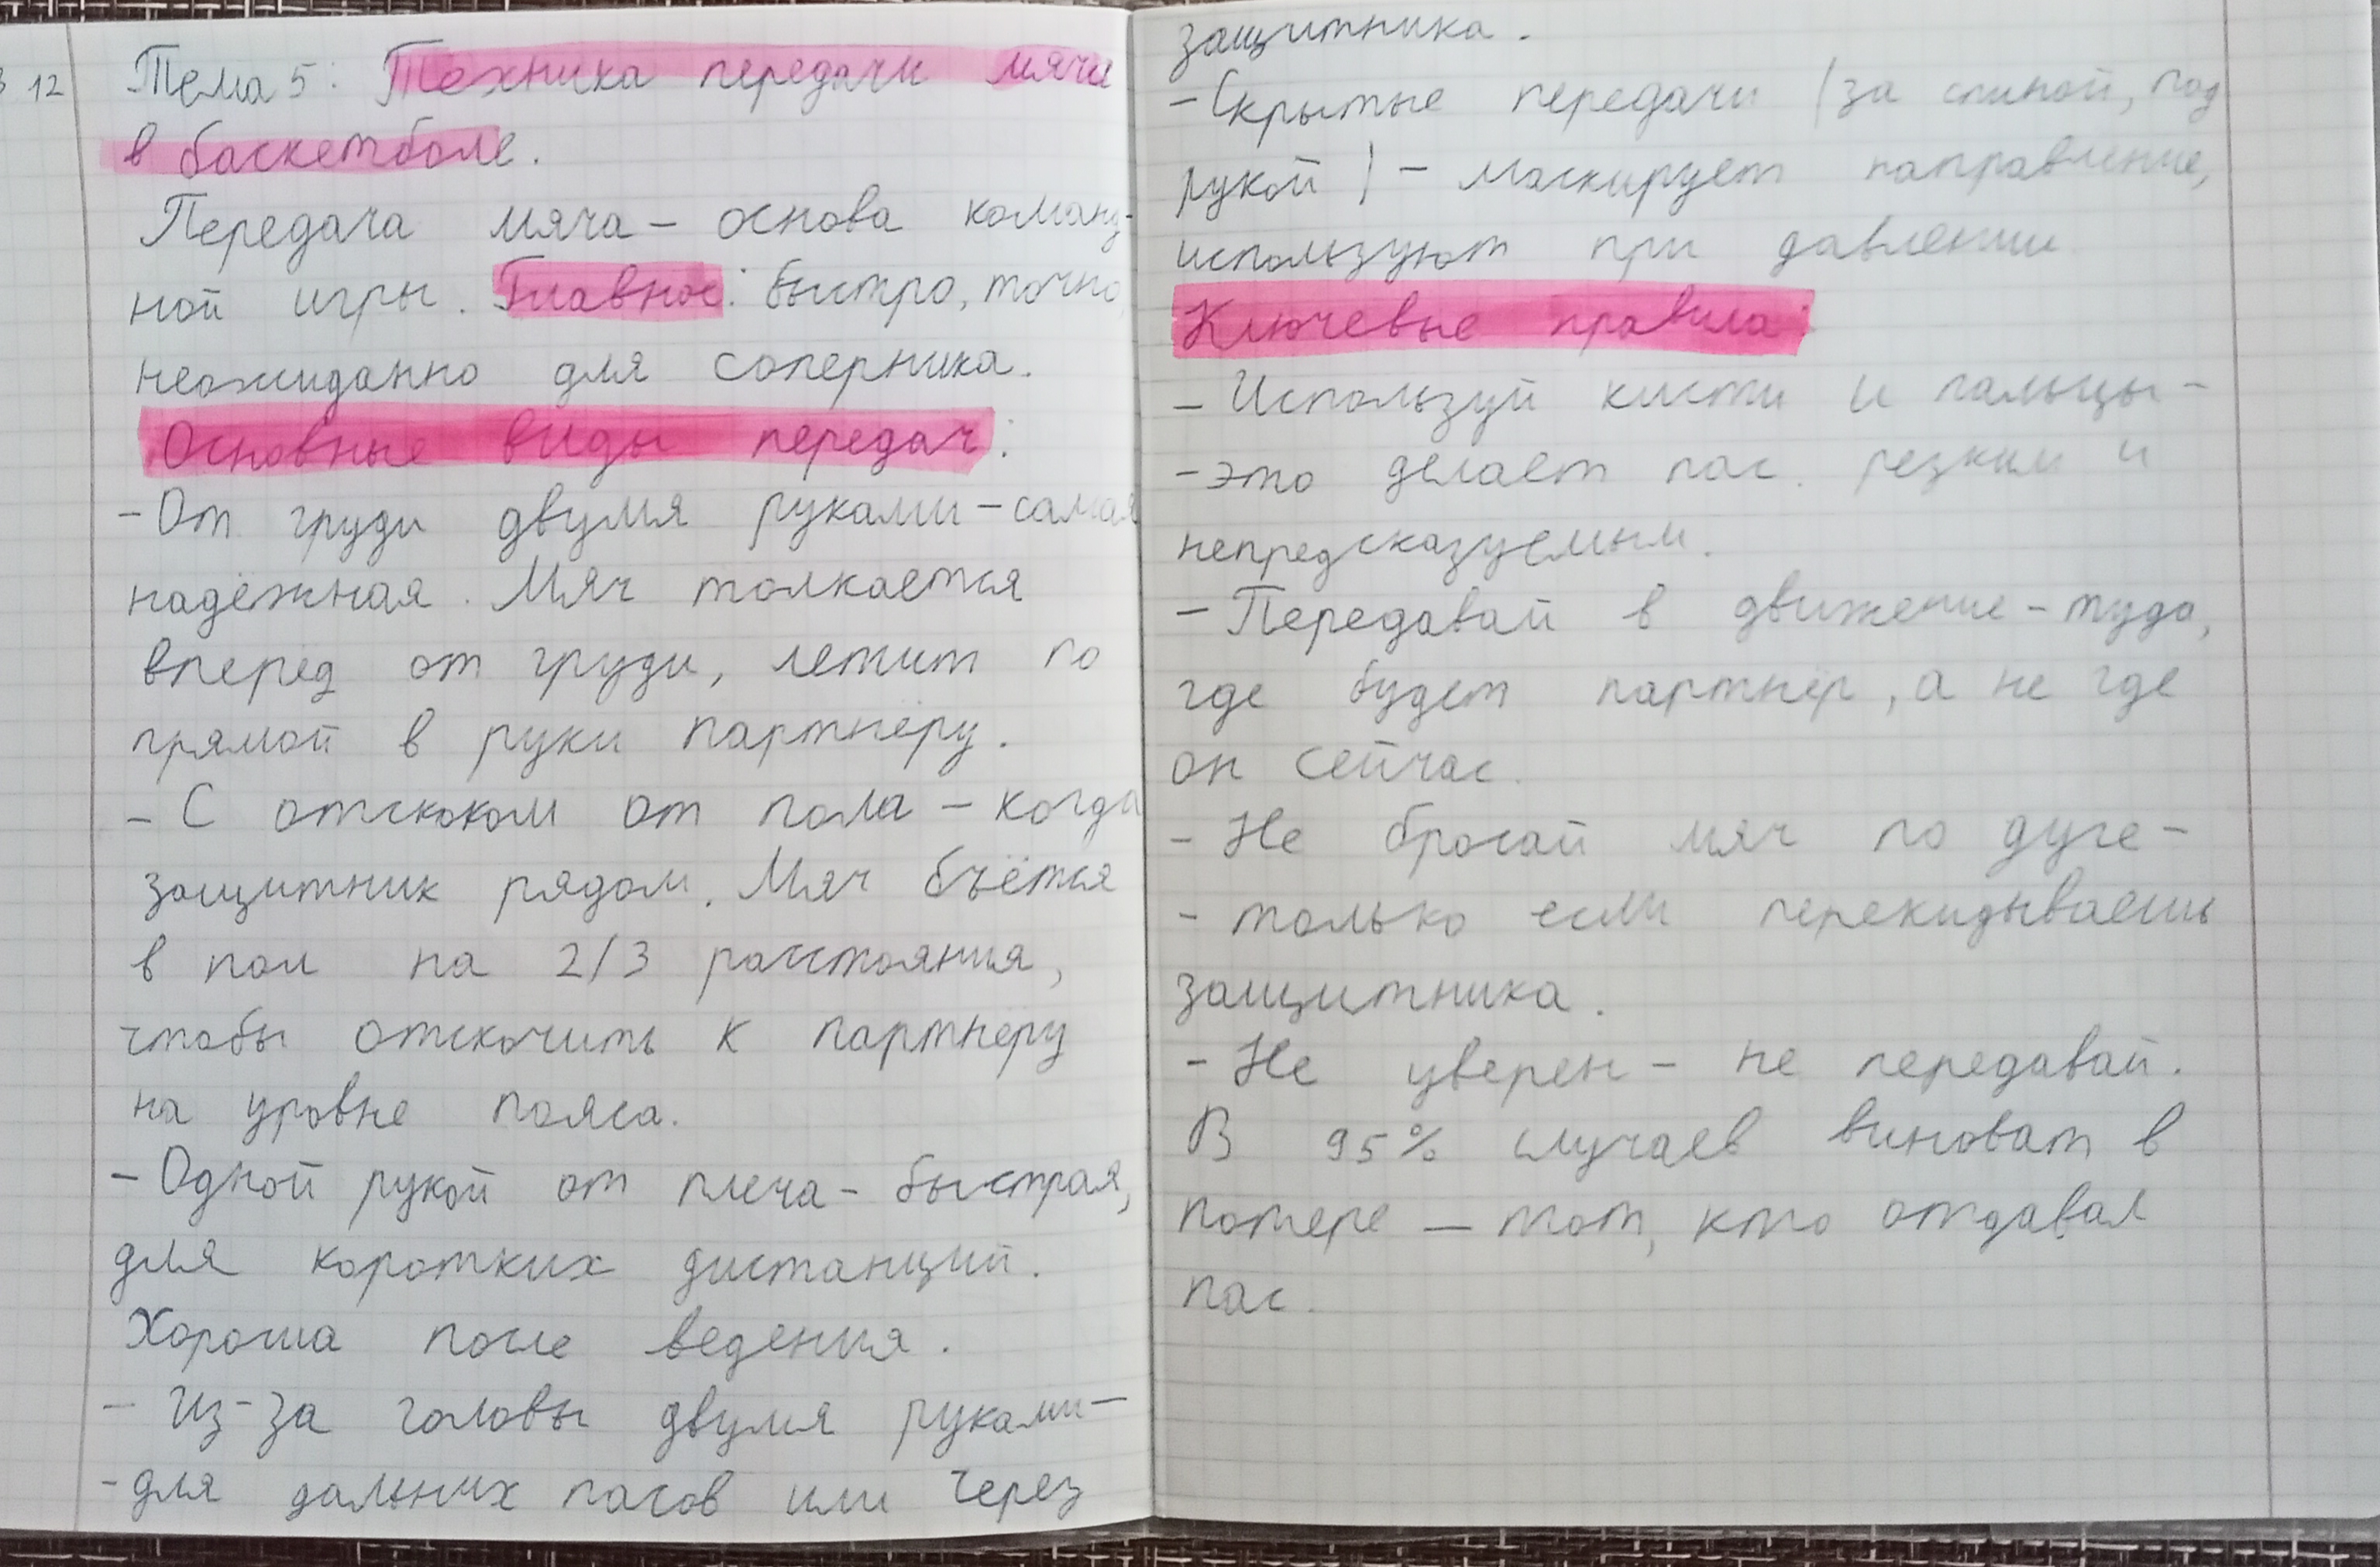 12
Тема 5: Техника передачи мяча
в баскетболе.
Передача мяча – основа команд-
ной игры. Главное: быстро, точно,
неожиданно для соперника.
Основные виды передач:
- От груди двумя руками – самая
надёжная. Мяч толкается
вперёд от груди, летит по
прямой в руки партнёру.
- С отскоком от пола – когда
защитник рядом. Мяч бъётся
в пол на 2/3 расстояния,
чтобы отскочить к партнёру
на уровне пояса.
- Одной рукой от плеча – быстрая,
для коротких дистанций.
Хороша после ведения.
- Из-за головы двумя руками –
- для дальних пасов или через
защитника.
- Скрытые передачи /за спиной, под
рукой/ – маскирует направление,
используют при давлении
Ключевые правила:
- Используй кисти и пальцы -
- это делает пас. резким и
непредсказуемым.
- Передавай в движение – туда,
где будет партнёр, а не где
он сейчас.
- Не бросай мяч по дуге -
- только если перекидываешь
защитника.
- Не уверен – не передавай.
В 95% случаев виноват в
потере – тот, кто отдавал
пас.